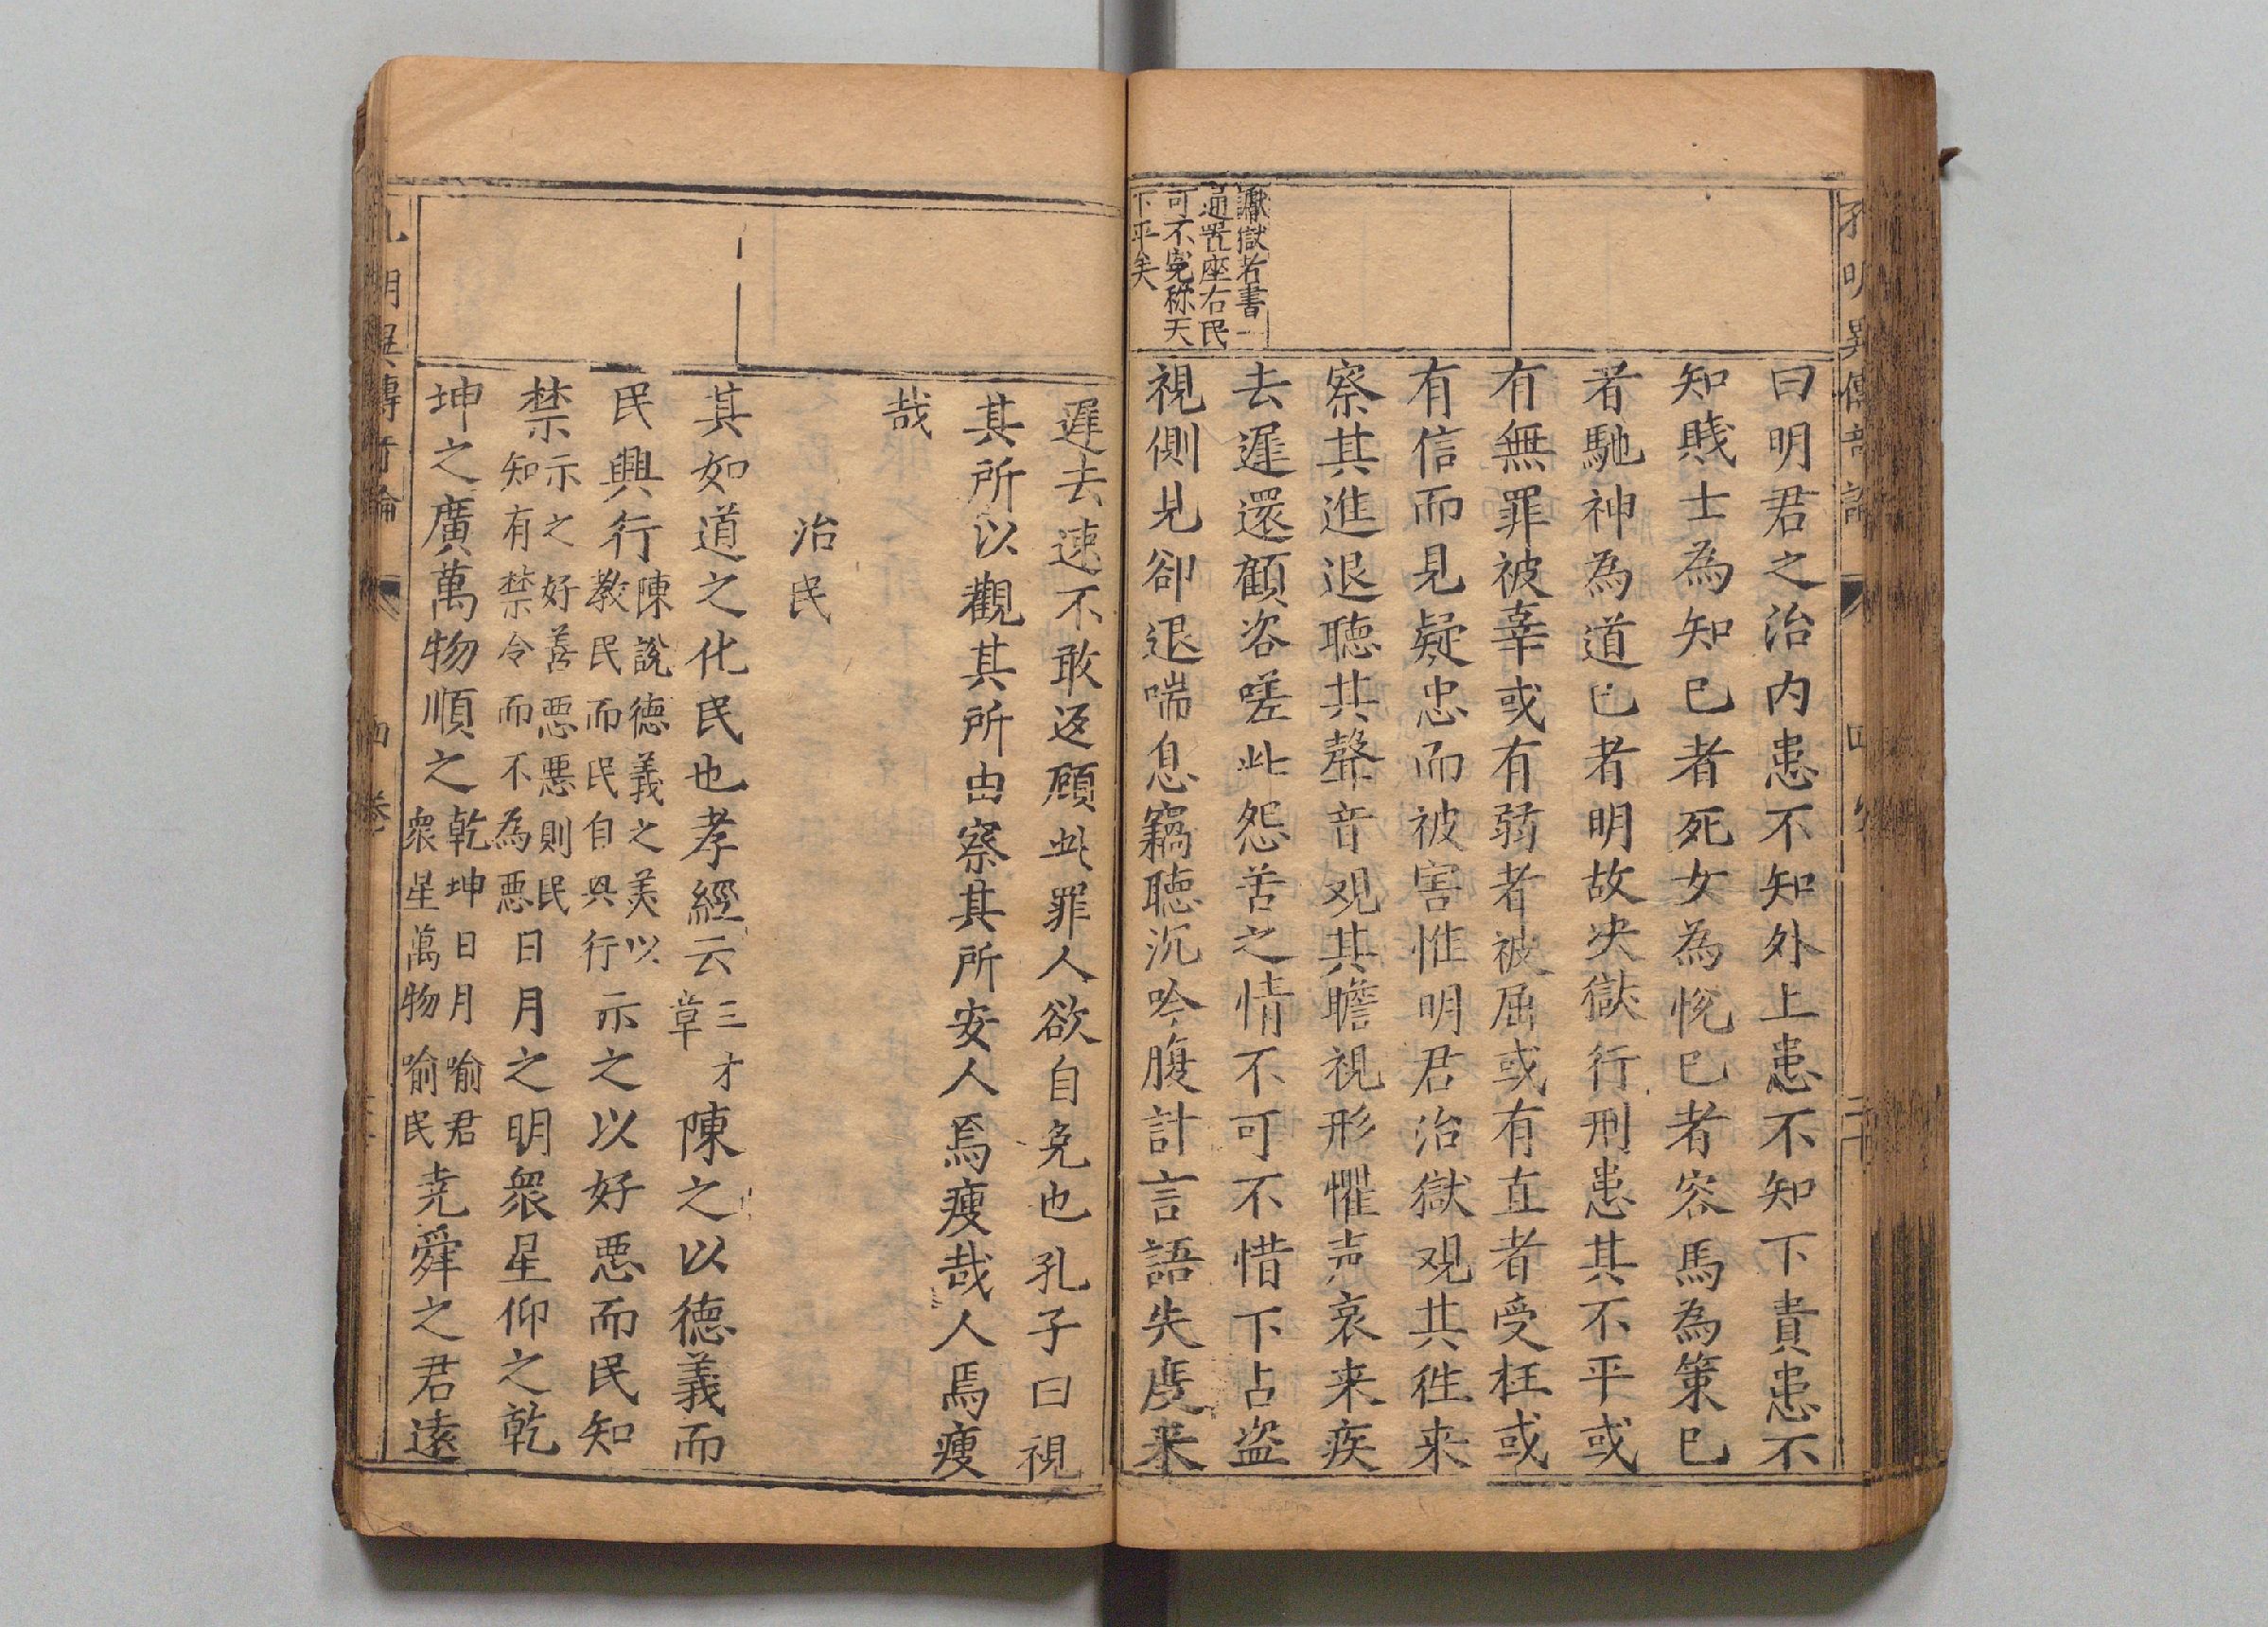 讞獄者書一
通置座右民
可不寃称天
下平矣
曰明君之治内患不知外上患不知下貴患不
知賤士為知已者死女為悅已者容馬為策已
者馳神為道已者明故决獄行刑患其不平或
有無罪被辜或有弱者被屈或有直者受枉或
有信而見疑忠而被害惟明君治獄观其徃来
察其進退聴其聲音观其瞻視形懼声哀来疾
去遲還顧咨嗟此怨苦之情不可不惜下占盗
視側見卻退喘息竊聴沉吟腹計言語失度来
遲去速不敢返顧此罪人欲自免也孔子曰視
其所以觀其所由察其所安人焉瘦哉人焉瘦
哉
治民
其如道之化民也孝經云三才章陳之以德義而
民興行陳說德義之美以教民而民自興行示之以好惡而民知
禁示之好善惡悪則民知有禁令而不為惡日月之明衆星仰之乾
坤之廣萬物順之乾坤日月喻君衆星萬物喻民尭舜之君遠